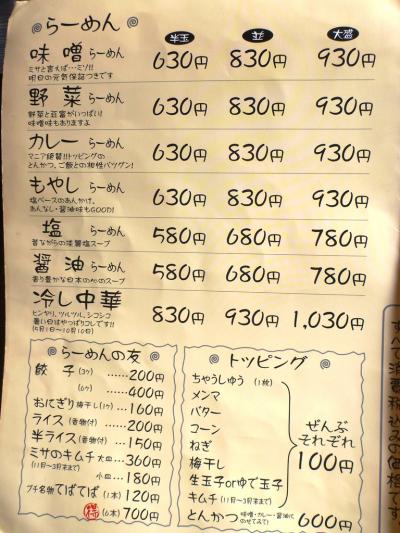 らーめん
半玉 並 大盛
味噌らーめん 630円 830円 930円
ミサと言えば…ミソ!!
明日の元気保証つきです
野菜らーめん 630円 830円 930円
野菜と豆富がいっぱい!
味噌味もありますよ
カレーらーめん 630円 830円 930円
マニア絶賛!!トッピングの
とんかつ、ご飯との相性バツグン!
もやしらーめん 630円 830円 930円
塩ベースのあんかけ。
あんなし・醤油味もGOOD!
塩らーめん 580円 680円 780円
昔ながらの淡麗塩スープ
醤油らーめん 580円 680円 780円
香り豊かな日本の心のスープ
冷し中華 830円 930円 1,030円
ヒンヤリ、ツルツル、シコシコ
暑い日はやっぱりコレです!!
(5月1日〜10月10日)
らーめんの友
餃子(3ケ)……200円
(6ケ)……400円
おにぎり梅干し(1ケ)…160円
ライス(香物付)……200円
半ライス(香物付)…150円
ミサのキムチ大皿…360円
(11月〜3月末まで)
小皿…180円
プチ名物てばてば(1本)120円
(6本)700円
トッピング
ちゃうしゅう(1枚)
メンマ
バター
コーン
ねぎ
梅干し
生玉子orゆで玉子
キムチ(11月〜3月末まで)
ぜんぶ
それぞれ
100円
とんかつ 味噌・カレー・醤油に
のせてスて 600円
すべて消費税込みの価格です